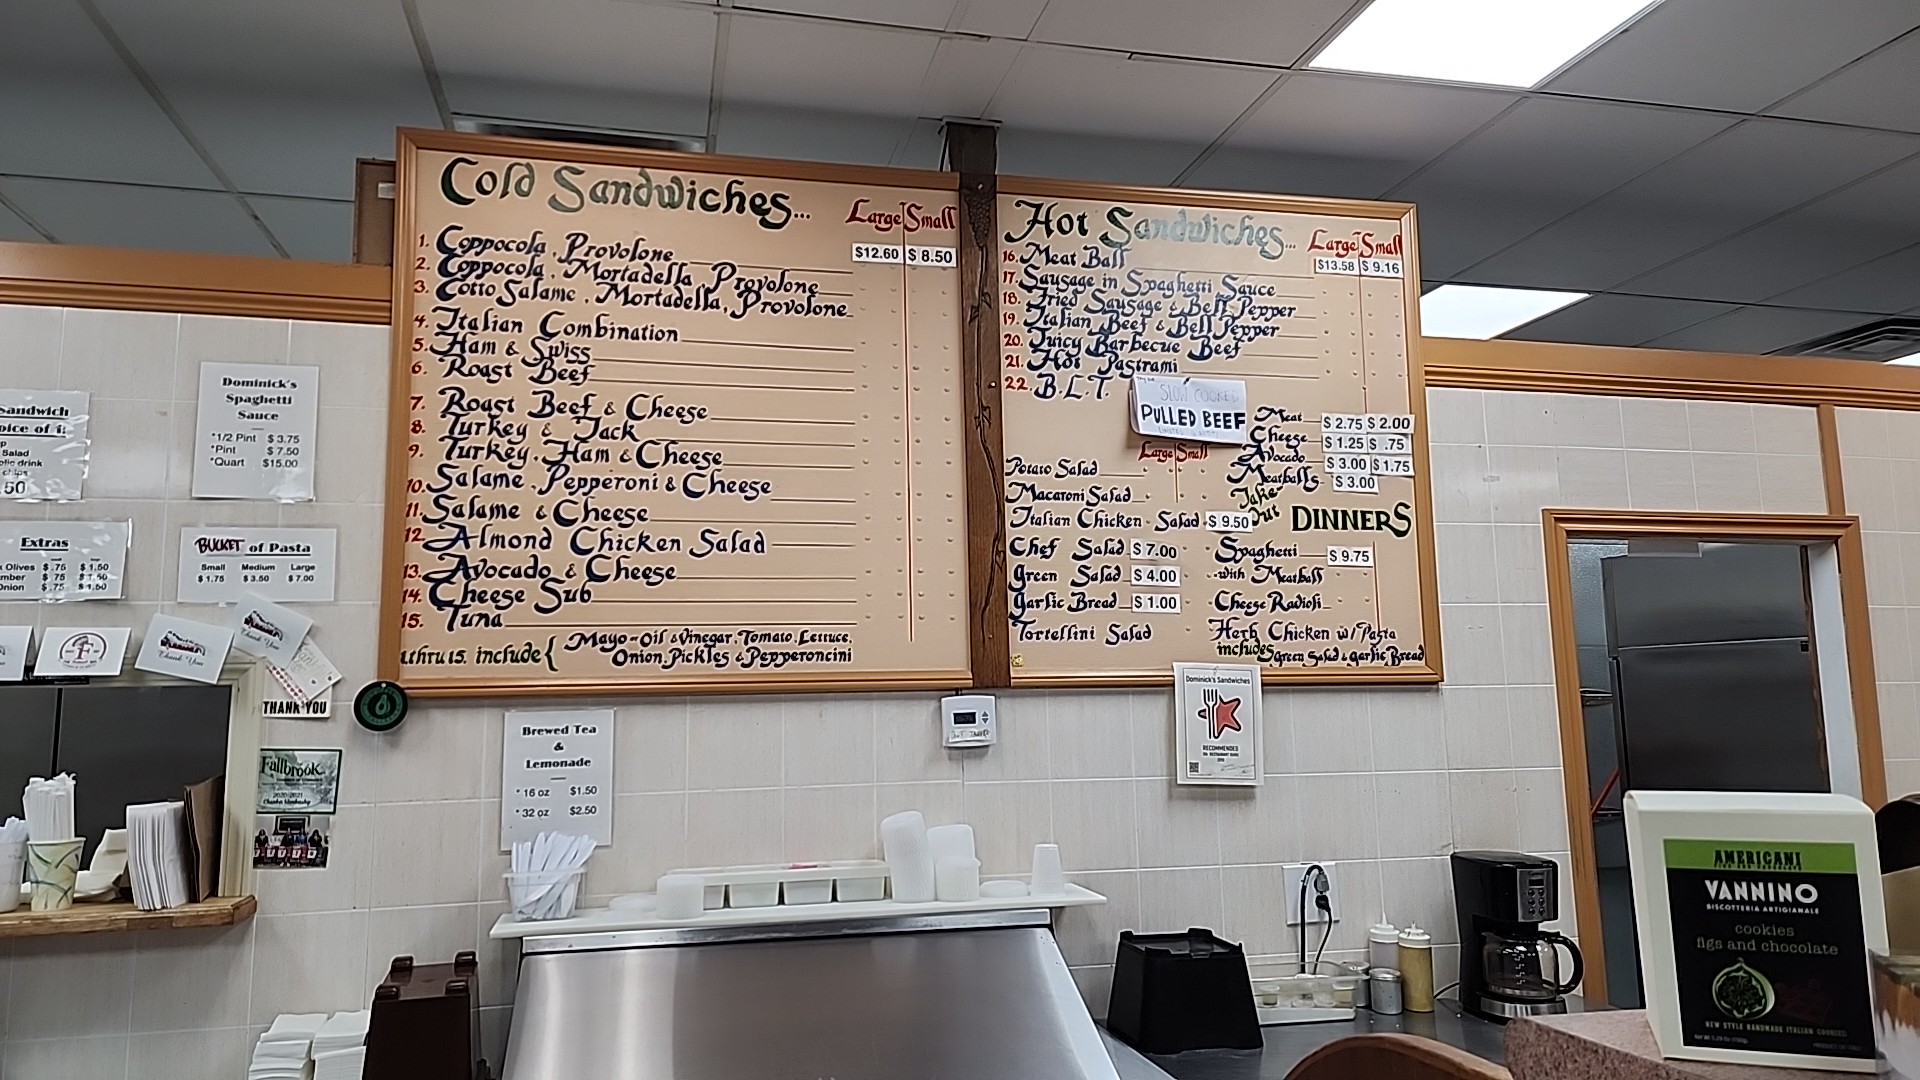 Cold Sandwiches...
Large Small
$12.60 $ 8.50
1. Coppocola, Provolone
2. Coppocola, Mortadella, Provolone
3. Cotto Salame, Mortadella, Provolone
4. Italian Combination
5. Ham & Swiss
6. Roast Beef
7. Roast Beef & Cheese
8. Turkey & Jack
9. Turkey, Ham & Cheese
10. Salame, Pepperoni & Cheese
11. Salame & Cheese
12. Almond Chicken Salad
13. Avocado & Cheese
14. Cheese Sub
15. Tuna
1 thru 15. include { Mayo-Oil & Vinegar, Tomato, Lettuce,
Onion, Pickles & Pepperoncini
Hot Sandwiches...
Large Small
$13.58 $ 9.16
16. Meat Ball
17. Sausage in Spaghetti Sauce
18. Fried Sausage & Bell Pepper
19. Italian Beef & Bell Pepper
20. Juicy Barbecue Beef
21. Hot Pastrami
22. B.L.T.
SLOW COOKED
PULLED BEEF
Meat $ 2.75 $ 2.00
Cheese $ 1.25 $ .75
Avocado $ 3.00 $ 1.75
Meatballs $ 3.00
Large Small
Potato Salad
Macaroni Salad
Italian Chicken Salad $ 9.50
Chef Salad $ 7.00
Green Salad $ 4.00
Garlic Bread $ 1.00
Tortellini Salad
Take-
Out DINNERS
Spaghetti $ 9.75
with Meatball
Cheese Radioli
Herb Chicken w/ Pasta
includes Green Salad & Garlic Bread
Sandwich
Salad
drink
chips
.50
Dominick's
Spaghetti
Sauce
*1/2 Pint $ 3.75
*Pint $ 7.50
*Quart $15.00
Extras
Olives $ .75 $ 1.50
$ .75 $ 1.50
Onion $ .75 $ 1.50
BUCKET of Pasta
Small Medium Large
$ 1.75 $ 3.50 $ 7.00
Thank You
Thank You
THANK YOU
Fallbrook
2020-2021
Brewed Tea
&
Lemonade
* 16 oz $1.50
* 32 oz $2.50
Dominick's Sandwiches
RECOMMENDED
AMERICANI
VANNINO
BISCOTTERIA ARTIGIANALE
cookies
figs and chocolate
NEW STYLE HANDMADE ITALIAN COOKIES